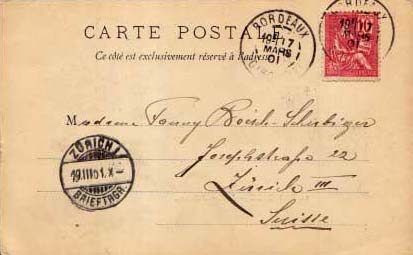 CARTE POSTALE
Ce côté est exclusivement réservé à l'adresse
BORDEAUX
17
MARS
01
Madame Fanny
Josephstraße 22
Zürich III
Suisse
ZÜRICH 1
19.III.01.X-
BRIEFTRGR.